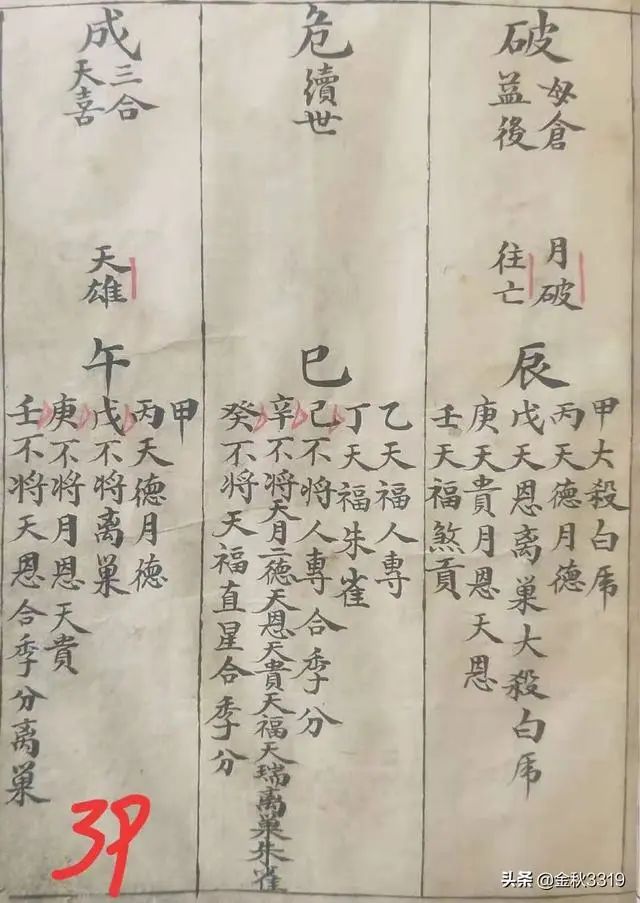 破
母倉
益後
月破
往亡
辰
甲大殺白虎
丙天德月德
戊天恩离巢大殺白虎
庚天貴月恩天恩
壬天福煞貢
危
續世
巳
乙天福人專
丁天福朱雀
己不将人專合季分
辛不将天月二德天恩天貴天福天瑞离巢朱雀
癸不将天福直星合季分
成
三合
天喜
天雄
午
甲
丙天德月德
戊不将离巢
庚不将月恩天貴
壬不将天恩合季分离巢
39
头条 @金秋3319